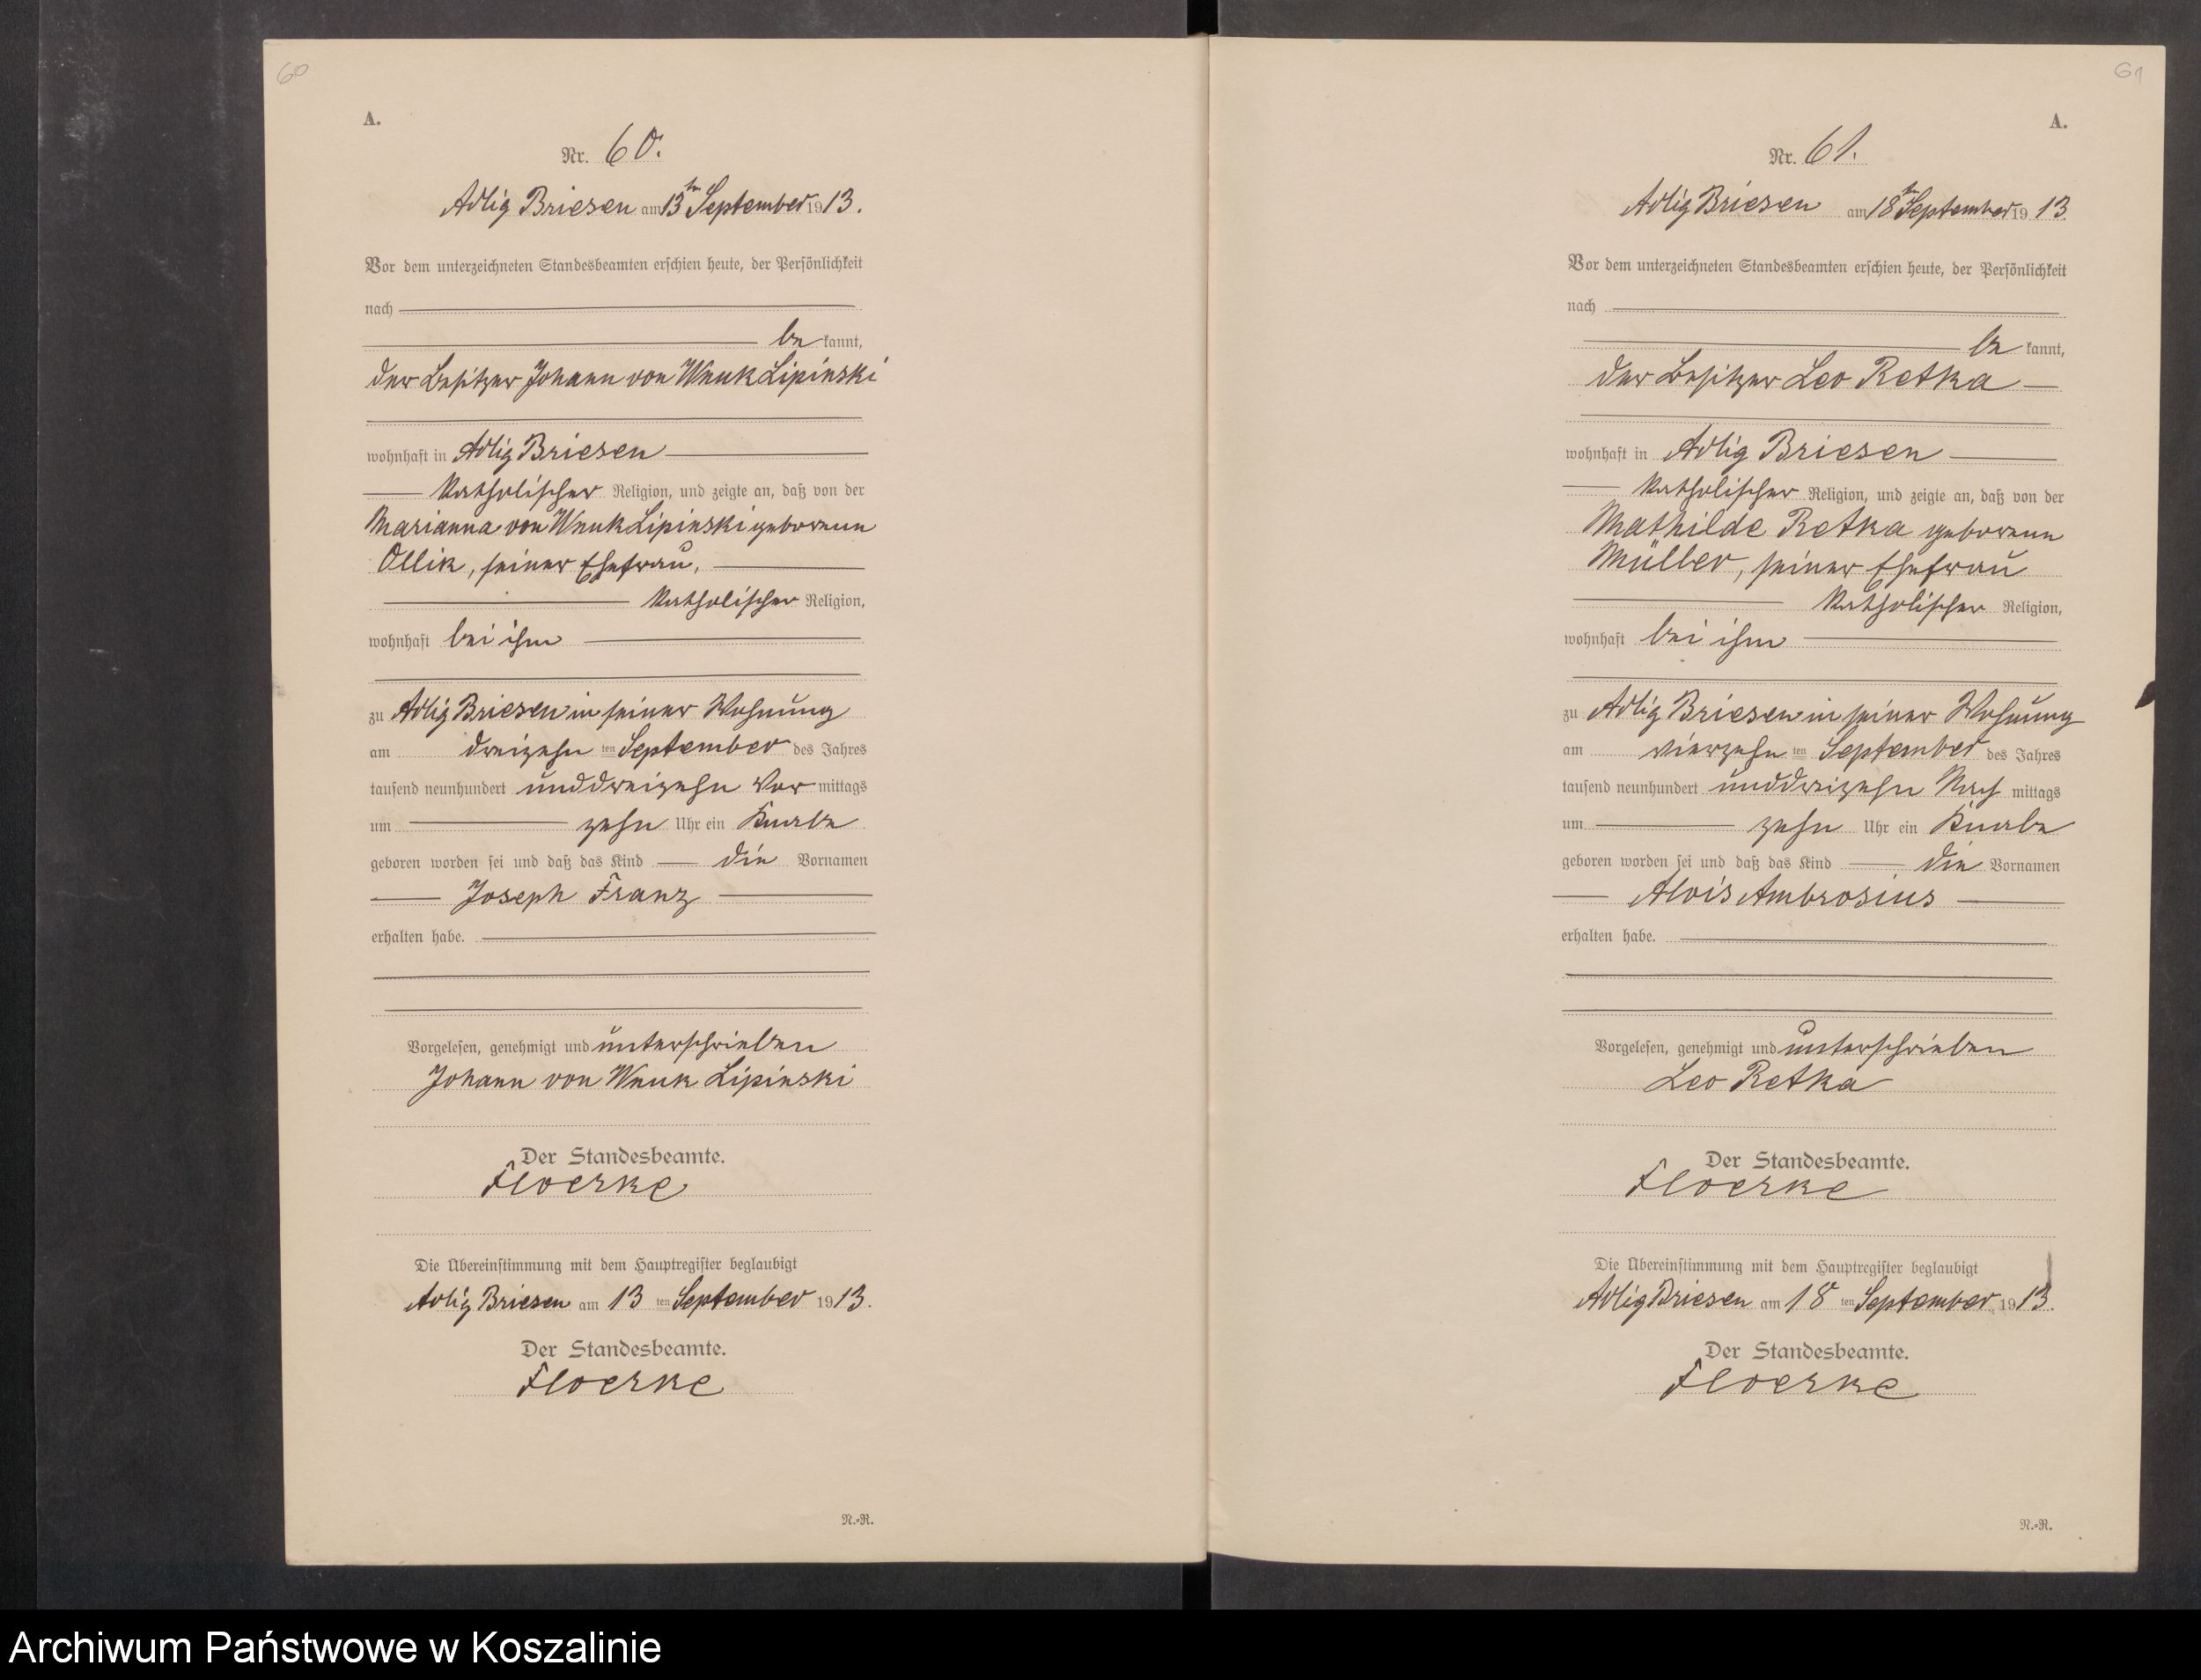 60
A.
Nr. 60.
Adlig Briesen am 13ten September 1913.
Vor dem unterzeichneten Standesbeamten erschien heute, der Persönlichkeit
nach
be kannt,
der Besitzer Johann von Wnuk Lipinski
wohnhaft in Adlig Briesen
katholischer Religion, und zeigte an, daß von der
Marianna von Wnuk Lipinski geborenen
Ollik, seiner Ehefrau,
katholischer Religion,
wohnhaft bei ihm
zu Adlig Briesen in seiner Wohnung
am dreizehn ten September des Jahres
tausend neunhundert unddreizehn Vor mittags
um zehn Uhr ein Knabe
geboren worden sei und daß das Kind die Vornamen
Joseph Franz
erhalten habe.
Vorgelesen, genehmigt und unterschrieben
Johann von Wnuk Lipinski
Der Standesbeamte.
Floerke
Die Übereinstimmung mit dem Hauptregister beglaubigt
Adlig Briesen am 13 ten September 1913.
Der Standesbeamte.
Floerke
N.-R.
61
A.
Nr. 61.
Adlig Briesen am 18ten September 1913.
Vor dem unterzeichneten Standesbeamten erschien heute, der Persönlichkeit
nach
be kannt,
der Besitzer Leo Retka
wohnhaft in Adlig Briesen
katholischer Religion, und zeigte an, daß von der
Mathilde Retka geborenen
Müller, seiner Ehefrau
katholischer Religion,
wohnhaft bei ihm
zu Adlig Briesen in seiner Wohnung
am vierzehn ten September des Jahres
tausend neunhundert unddreizehn Nach mittags
um zehn Uhr ein Knabe
geboren worden sei und daß das Kind die Vornamen
Alois Ambrosius
erhalten habe.
Vorgelesen, genehmigt und unterschrieben
Leo Retka
Der Standesbeamte.
Floerke
Die Übereinstimmung mit dem Hauptregister beglaubigt
Adlig Briesen am 18 ten September 1913.
Der Standesbeamte.
Floerke
N.-R.
Archiwum Państwowe w Koszalinie